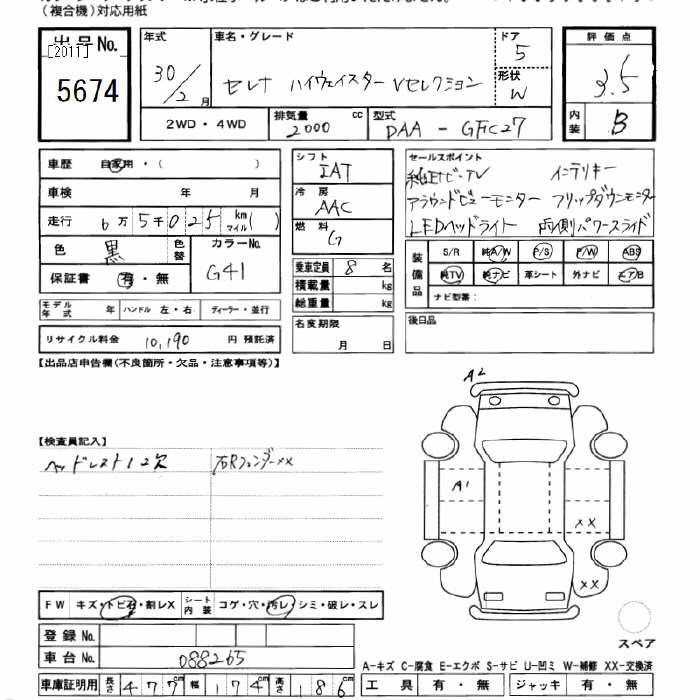 (複合機)対応用紙
出品No.
[2011]
5674
年式
30/2月
車名・グレード
セレナ ハイウェイスター Vセレクション
ドア
5
形状
W
評価点
3.5
2WD・4WD
排気量
2000 cc
型式
DAA-GFC27
内装
B
車歴 自家用・( )
車検 年 月
走行 6万5千025km マイル( )
色 黒 色替
カラーNo. G41
保証書 有・無
モデル年式 年 ハンドル 左・右 ディーラー・並行
リサイクル料金 10,190 円 預託済
シフト
IAT
冷房
AAC
燃料
G
乗車定員 8 名
積載量 kg
総重量 kg
名変期限
月 日
セールスポイント
純正ナビ・TV インテリキー
アラウンドビューモニター フリップダウンモニター
LEDヘッドライト 両側パワースライド
装備品
S/R 純A/W P/S P/W ABS
純TV 純ナビ 革シート 外ナビ エアB
ナビ型番:
後日品
【出品店申告欄(不良箇所・欠品・注意事項等)】
【検査員記入】
ヘッドレスト1コ欠
右Rフェンダーxx
A2
A1
XX
XX
スペア
FW キズ・トビ石・割レX シート内装 コゲ・穴・汚レ・シミ・破レ・スレ
登録No.
車台No. 088265
車庫証明用 長さ 477 幅 174 高さ 186
A-キズ C-腐食 E-エクボ S-サビ U-凹ミ W-補修 XX-交換済
工具 有・無 ジャッキ 有・無